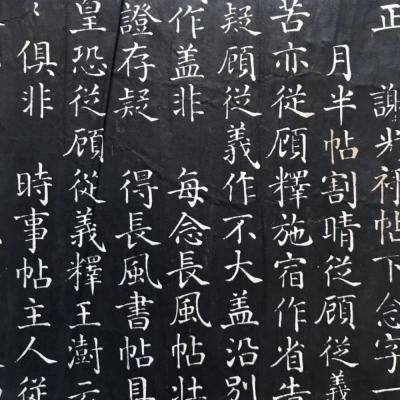 正　謝帖下念字一
月半帖割晴從顧從義
苦亦從顧釋施宿作省告
疑顧從義作不大盖沿別
作盖非　每念長風帖
證存疑　得長風書帖
皇恐從顧從義釋王澍云
俱非　時事帖主人從